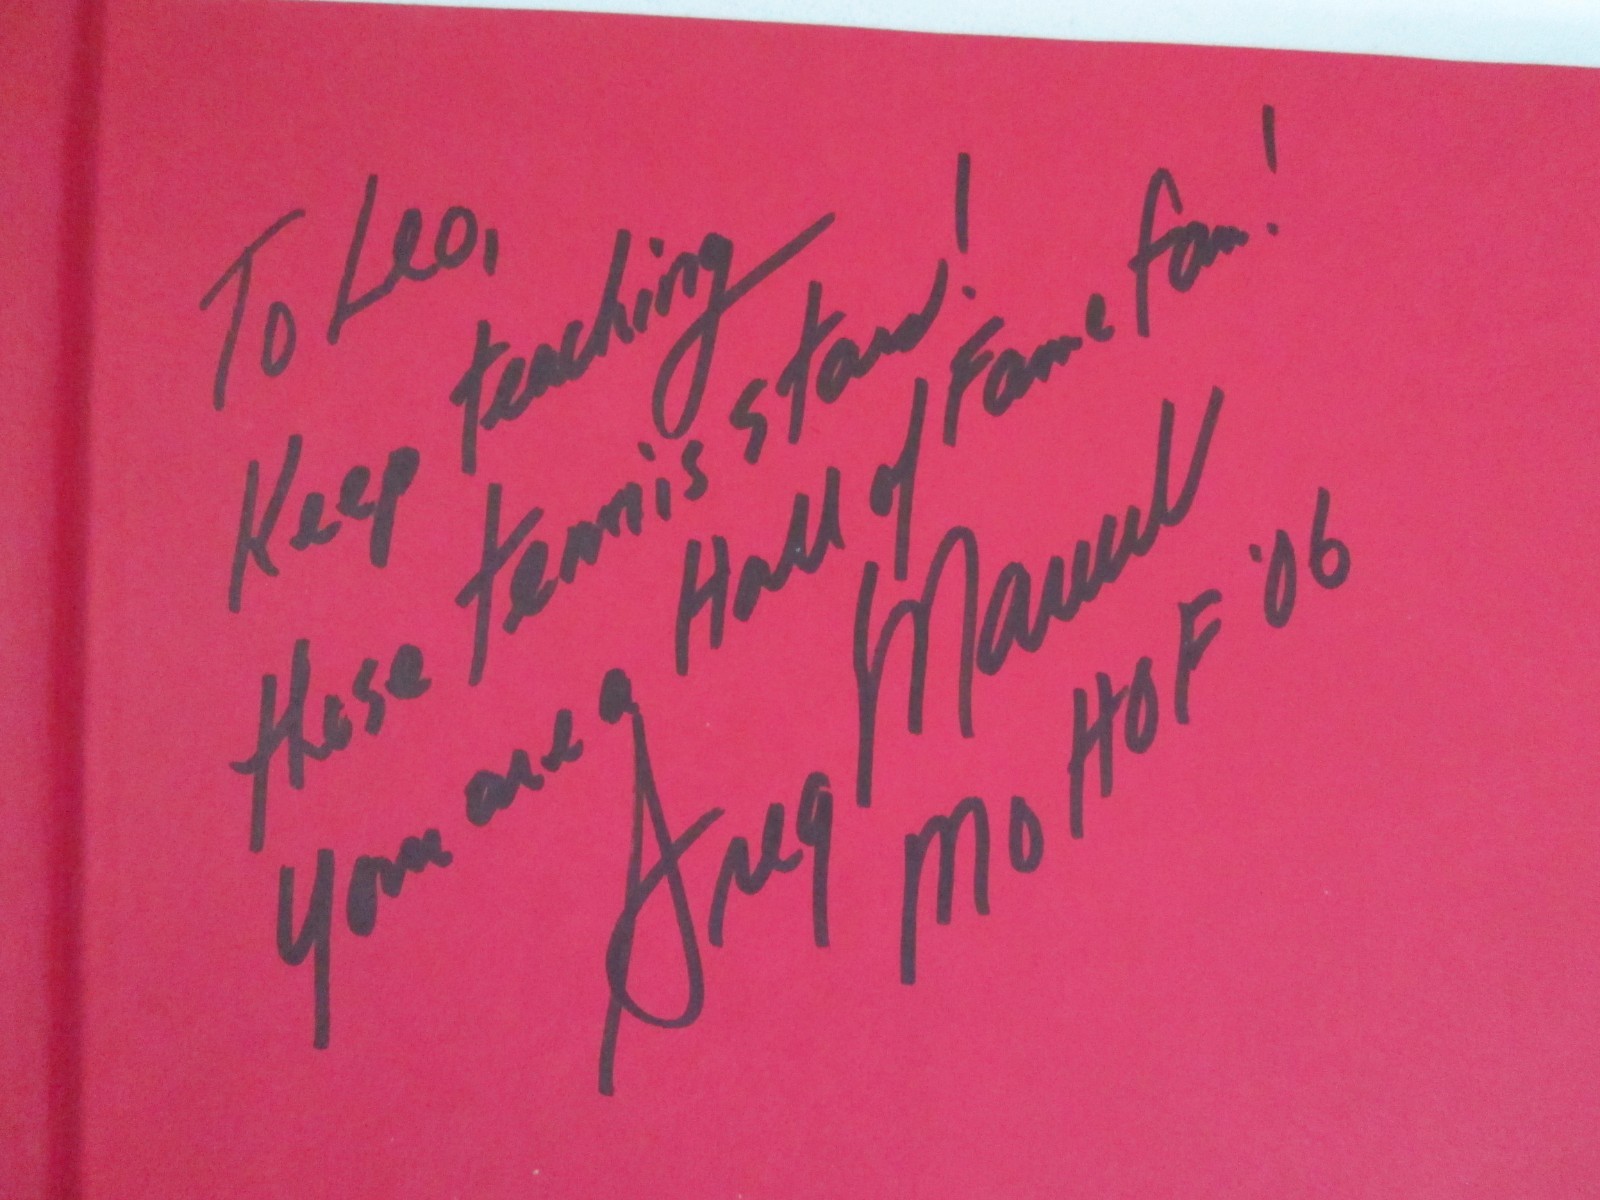 To Leo,
Keep teaching
those tennis stars!
You are a Hall of Fame fan!
Greg
MO HOF '06